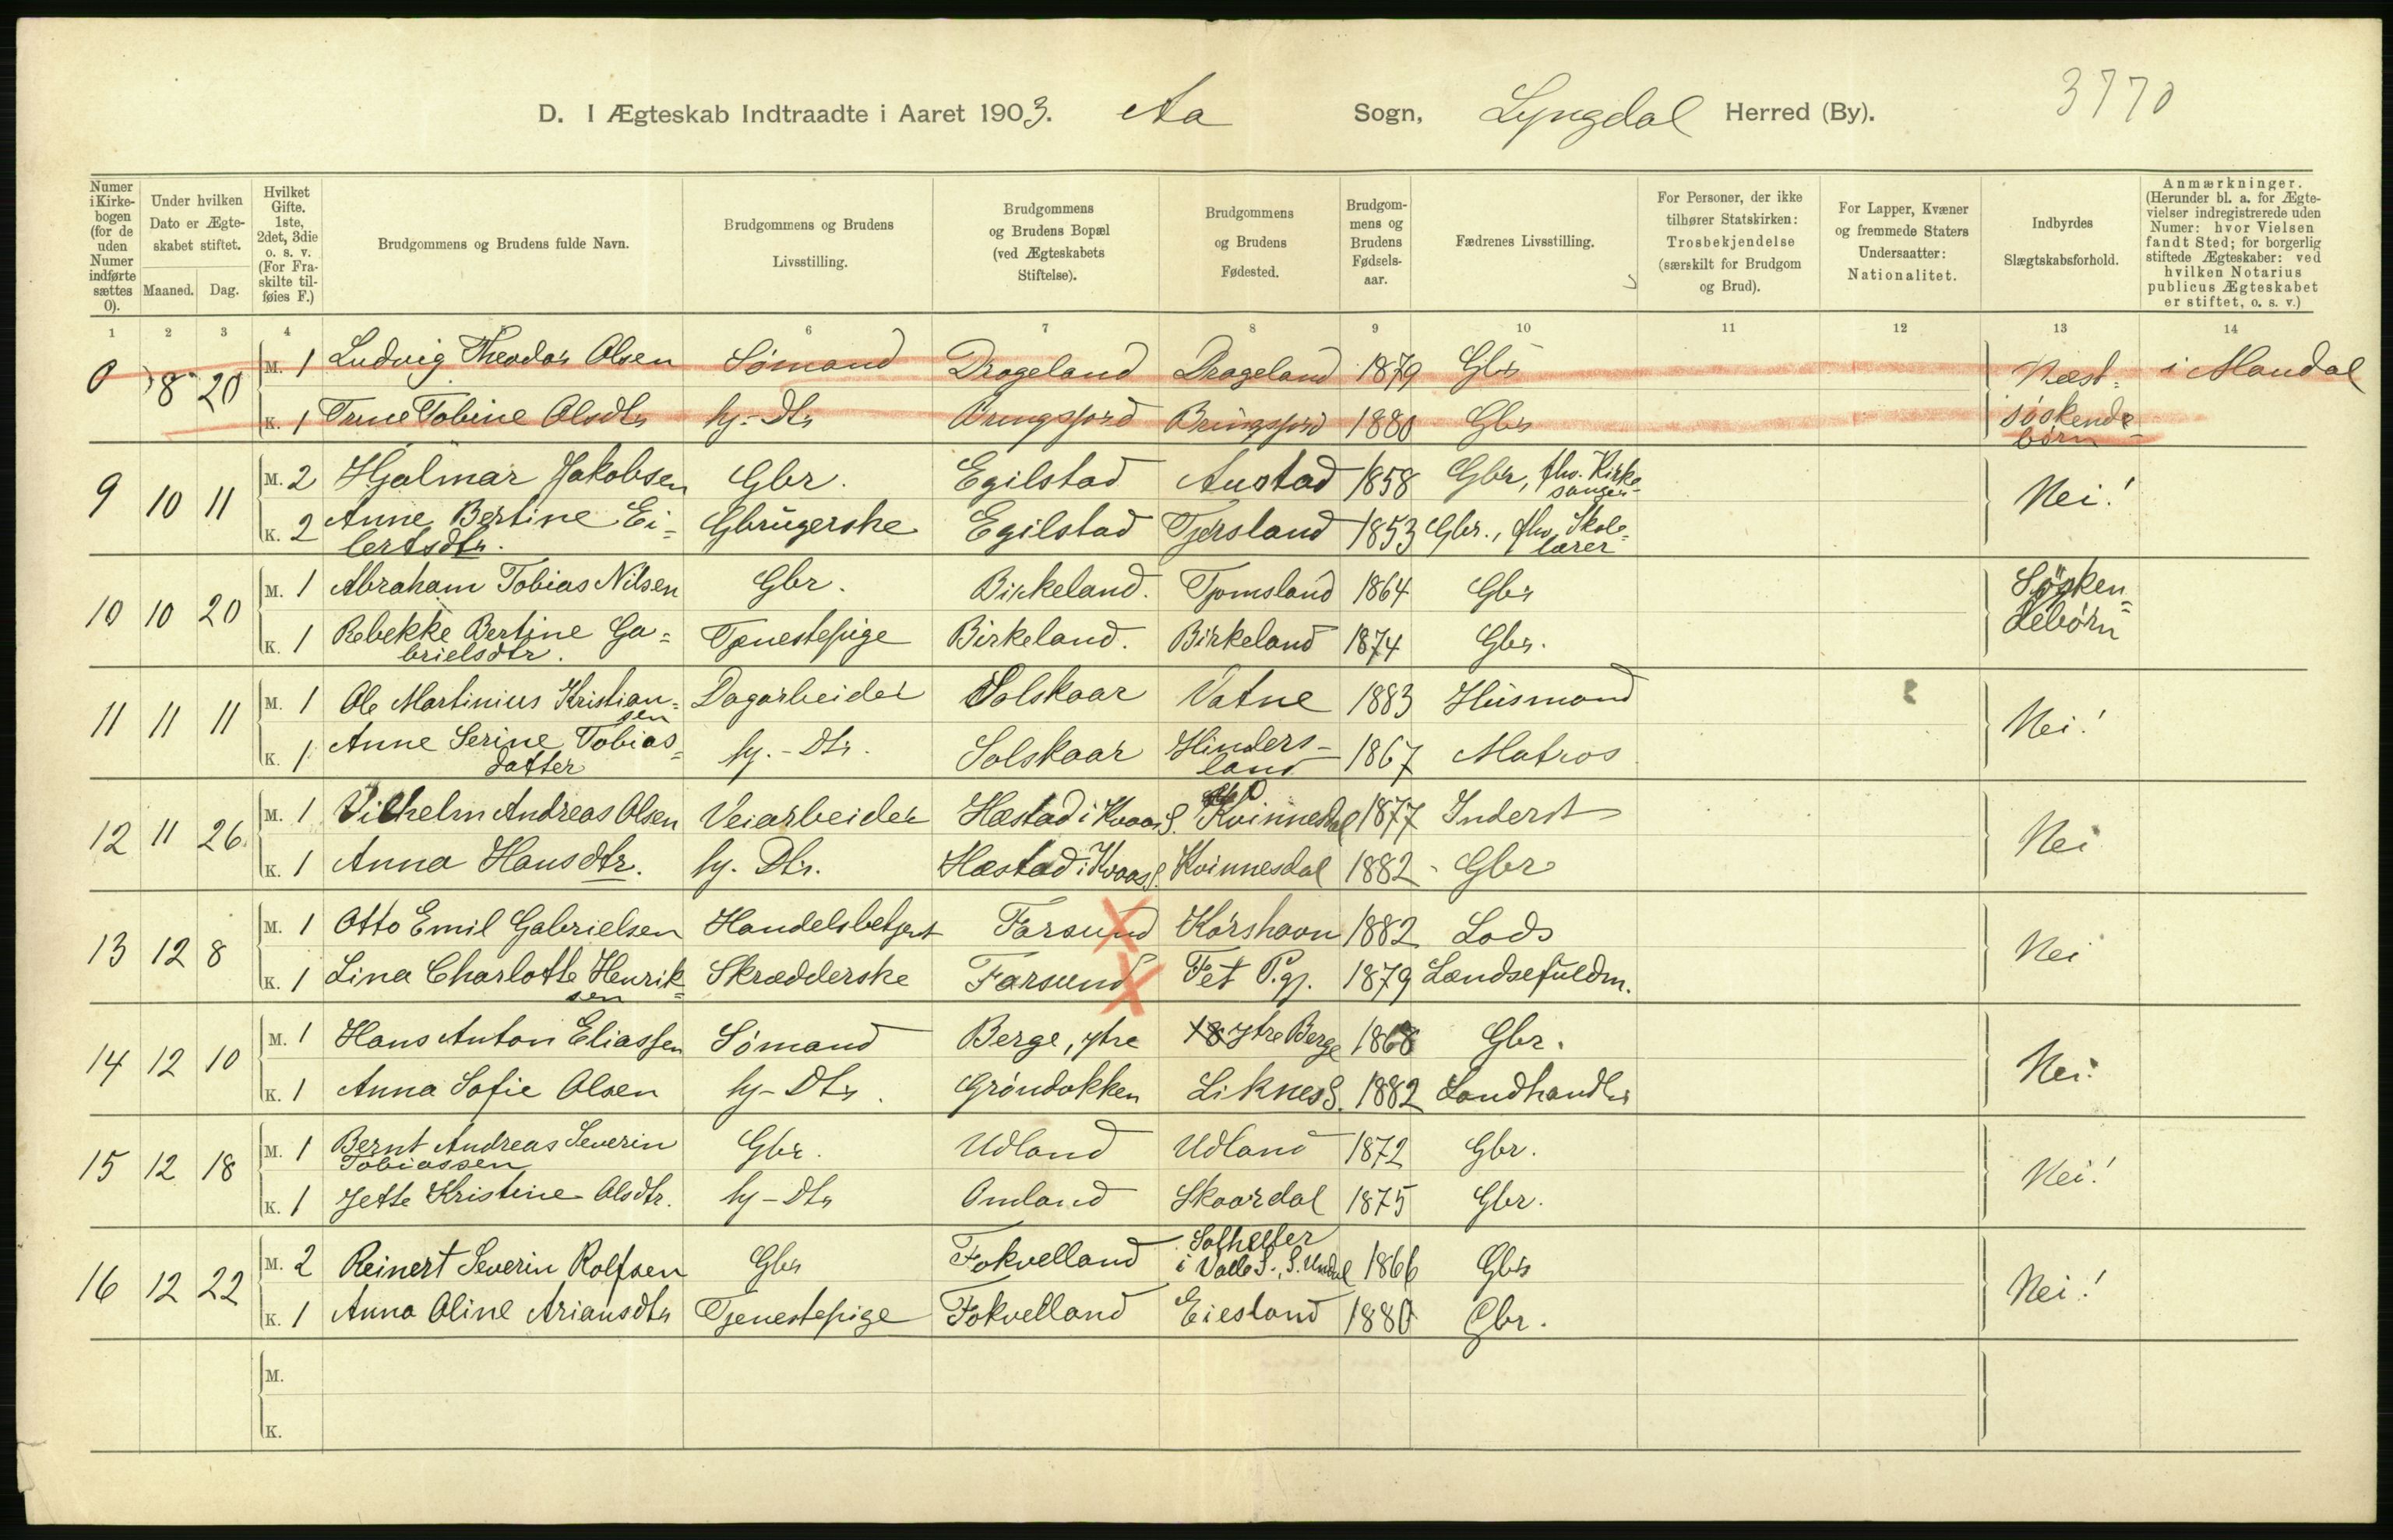 3770
D. I Ægteskab Indtraadte i Aaret 1903. Aa Sogn, Lyngdal Herred (By).
Numer i Kirkebogen (for de uden Numer indførte sættes 0).
Under hvilken Dato er Ægteskabet stiftet.
Maaned. Dag.
Hvilket Gifte. 1ste, 2det, 3die o. s. v. (For Fraskilte tilføies F.)
Brudgommens og Brudens fulde Navn.
Brudgommens og Brudens Livsstilling.
Brudgommens og Brudens Bopæl (ved Ægteskabets Stiftelse).
Brudgommens og Brudens Fødested.
Brudgommens og Brudens Fødselsaar.
Fædrenes Livsstilling.
For Personer, der ikke tilhører Statskirken: Trosbekjendelse (særskilt for Brudgom og Brud).
For Lapper, Kvæner og fremmede Staters Undersaatter: Nationalitet.
Indbyrdes Slægtskabsforhold.
Anmærkninger. (Herunder bl. a. for Ægtevielser indregistrerede uden Numer: hvor Vielsen fandt Sted; for borgerlig stiftede Ægteskaber: ved hvilken Notarius publicus Ægteskabet er stiftet, o. s. v.)
1 2 3 4 6 7 8 9 10 11 12 13 14
0 8 20 M. 1 Ludvig Theodor Olsen Sømand Drageland Drageland 1879 Gbr Næst= i Mandal
K. 1 Trine Tobine Olsdtr hj.-Dtr Bringsjord Bringsjord 1880 Gbr søskende
børn
9 10 11 M. 2 Hjalmar Jakobsen Gbr. Egilstad Austad 1858 Gbr, fhv. Kirke
sanger
Nei!
K. 2 Anne Bertine Ei= Gbrugerske Egilstad Tjersland 1853 Gbr., fhv. Skole=
lertsdtr. lærer
10 10 20 M. 1 Abraham Tobias Nilsen Gbr. Birkeland. Tjomsland 1864 Gbr Søsken=
debørn
K. 1 Rebekke Bertine Ga= Tjenestepige Birkeland. Birkeland 1874 Gbr.
brielsdtr.
11 11 11 M. 1 Ole Martinius Kristian= Dagarbeider Solskaar Vatne 1883 Husmand
sen
Nei!
K. 1 Anne Serine Tobias= hj.-Dtr. Solskaar Hinders- 1867 Matros
datter land
12 11 26 M. 1 Vilhelm Andreas Olsen Veiarbeider Hæstad i Kvaas S. Kvinnesdal 1877 Inderst
Nei
K. 1 Anna Hansdtr. hj. Dtr. Hæstad i Kvaas S. Kvinnesdal 1882 - Gbr
13 12 8 M. 1 Otto Emil Gabrielsen Handelsbetjent Farsund Korshavn 1882 Lods
Nei
K. 1 Lina Charlotte Henrik= Skrædderske Farsund Fet P.gj. 1879 Lændsefuldm.
sen
14 12 10 M. 1 Hans Anton Eliassen Sømand Berge, ytre 18 Ytre Berge 1868 Gbr.
Nei
K. 1 Anna Sofie Olsen hj-Dtr. Grøndokken Liknes S. 1882 Landhandler
15 12 18 M. 1 Bernt Andreas Severin Gbr. Udland Udland 1872 Gbr.
Tobiassen
Nei!
K. 1 Jette Kristine Olsdtr. hj-Dtr Omland Skaardal 1875 Gbr.
16 12 22 M. 2 Reinert Severin Rolfsen Gbr Fokvelland Solheller
i Valle S., S. Undal 1866 Gbr
Nei!
K. 1 Anna Oline Ariansdtr Tjenestepige Fokvelland Eiesland 1880 Gbr.
M.
K.